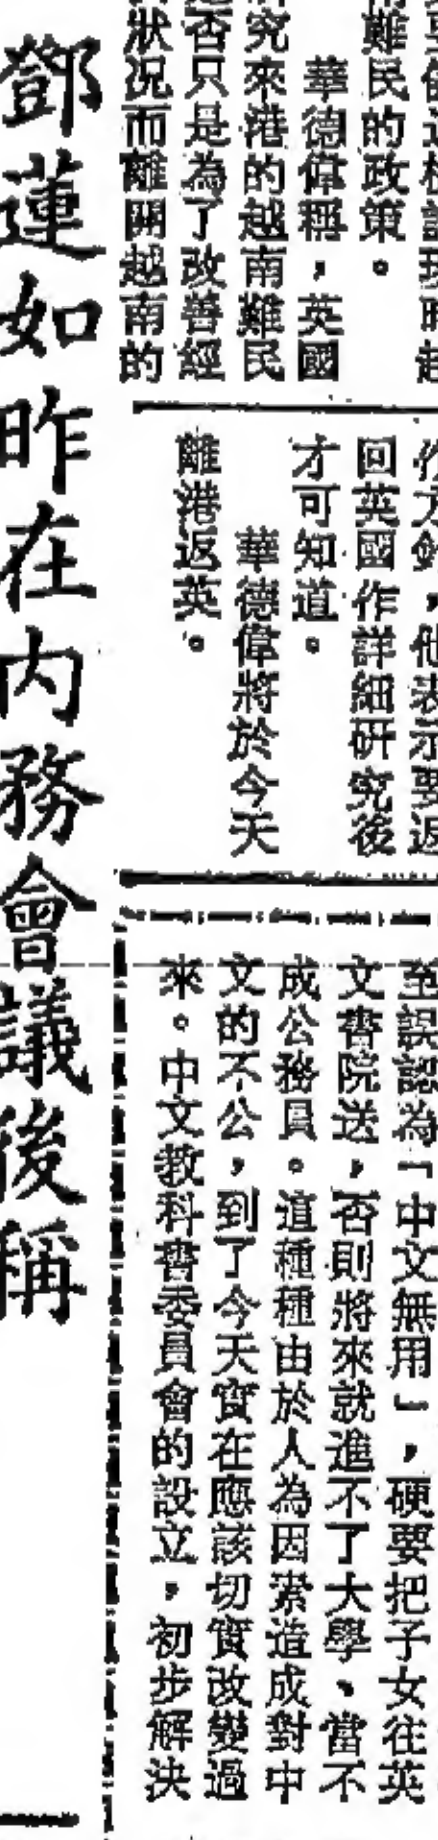 難民的政策。
華德偉稱，英國
究來港的越南難民
否只是為了改善經
狀況而離開越南的
作方針，他表示要返
回英國作詳細研究後
才可知道。
華德偉將於今天
離港返英。
至誤認為「中文無用」，硬要把子女往英
文書院送，否則將來就進不了大學、當不
成公務員。這種種由於人為因素造成對中
文的不公，到了今天實在應該切實改變過
來。中文教科書委員會的設立，初步解決
鄧蓮如昨在內務會議後稱